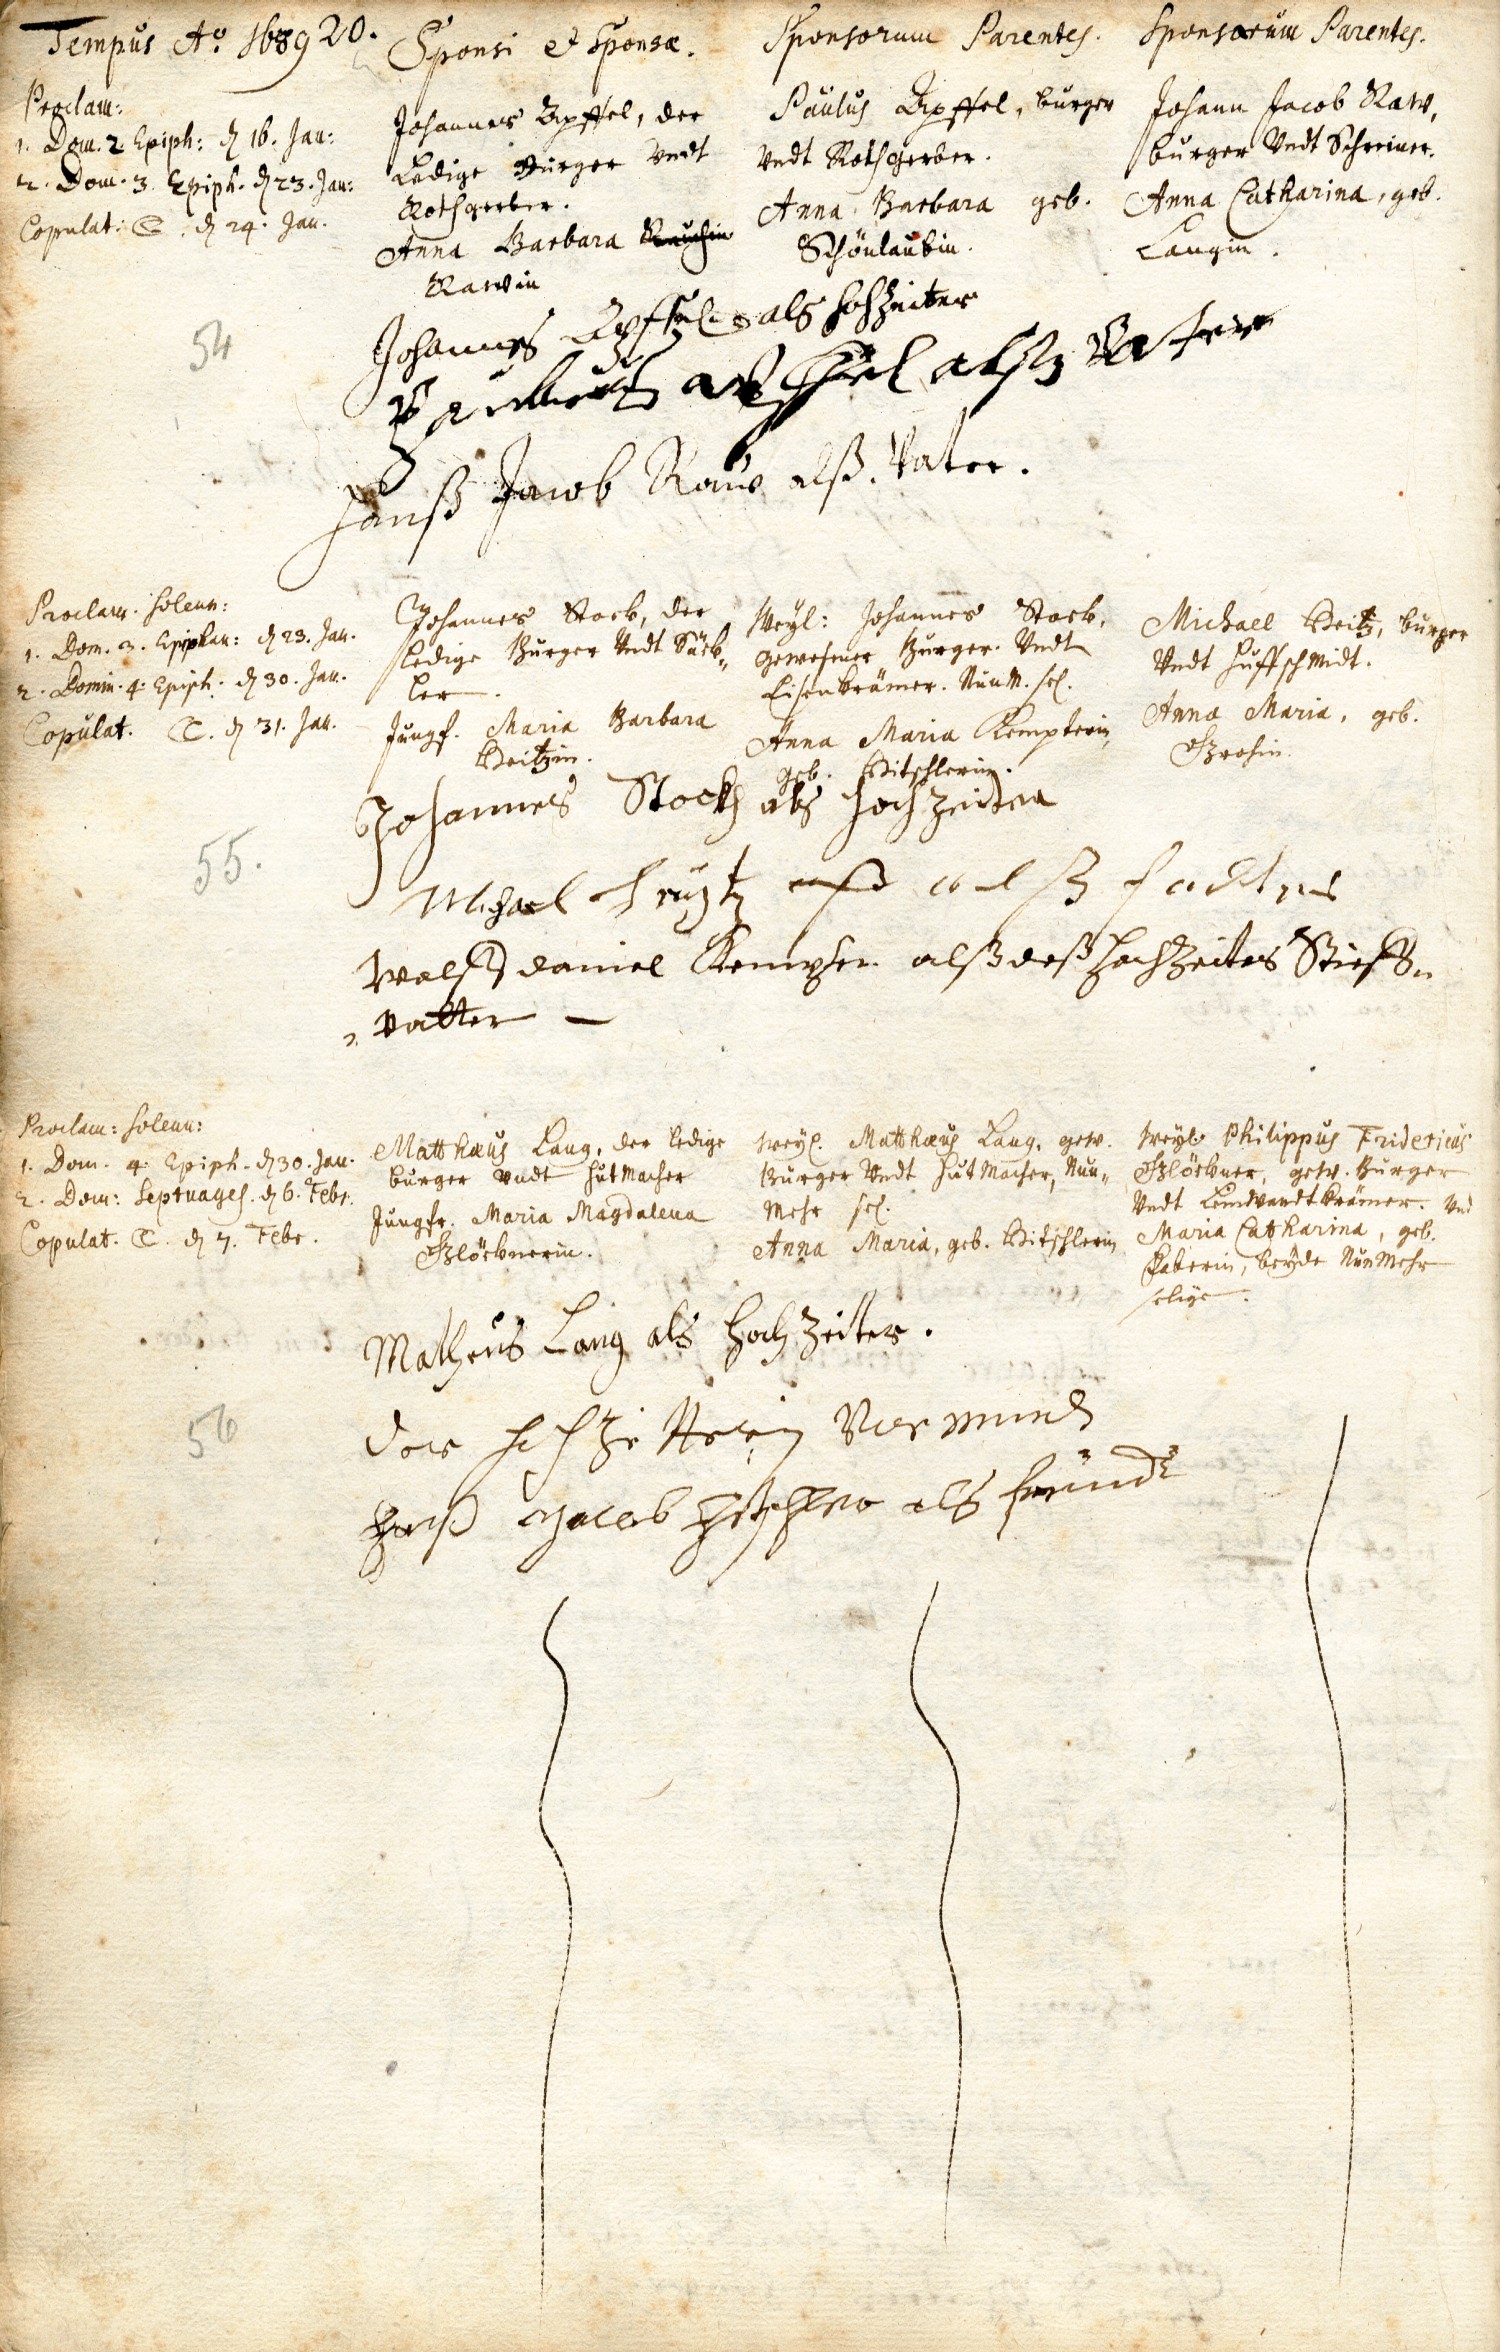 Tempus Ao. 1689 20.
Sponsi et Sponsae.
Sponsorum Parentes.
Sponsarum Parentes.
Proclam:
1. Dom. 2 Epiph: d 16. Jan:
2. Dom. 3. Epiph. d 23. Jan:
Copulat: C. d 24. Jan.
Johannes Apffel, der
Ledige Burger Vndt
Rothgerber.
Anna Barbara
Rawin
Paulus Apffel, burger
Vndt Rothgerber.
Anna Barbara geb.
Schönlaubin.
Johann Jacob Raw,
burger Vndt Schreiner.
Anna Catharina, geb.
Langin.
54
Johannes Apffel als hochzeiter
Paulus apffel alß Vatter
Hanß Jacob Rauw alß. Vater.
Proclam. solenn:
1. Dom. 3. Epiphan: d 23. Jan.
2. Domin. 4. Epiph. d 30. Jan.
Copulat. C. d 31. Jan.
Johannes Stock, der
ledige Burger Vndt Säck-
ler.
Jungf. Maria Barbara
Heitzin.
Weyl: Johannes Stock,
gewesener Burger Vndt
Eisenkrämer. NunM. sel.
Anna Maria Kempterin,
geb. Hitschlerin.
Michael Heitz, burger
Vndt Huffschmidt.
Anna Maria, geb.
Grosin.
55.
Johannes Stockh als Hochzeiter
Michael Heytz alß
Wolff daniel Kempter alß deß Hochzeiters Stieff-
Vatter —
Proclam: solenn:
1. Dom. 4. Epiph. d 30. Jan.
2. Dom: Septuages. d 6. Febr.
Copulat. C. d 7. Febr.
Matthaeus Lang, der ledige
burger Vndt HutMacher
Jungfr. Maria Magdalena
Glöcknerin.
Weyl. Matthaeus Lang, gew.
Burger Vndt HutMacher, Nun-
Mehr sel.
Anna Maria, geb. Hitschlerin
Weyl. Philippus Fridericus
Glöckner, gew. Burger
Vndt Leinwandtkrämer. Vnd
Maria Catharina, geb.
Faberin, beyde NunMehr
selige.
56
Matheus Lang als Hochzeiter.
Der hochzeitterin Vormund
Hanß Jacob Hitschler als freundt